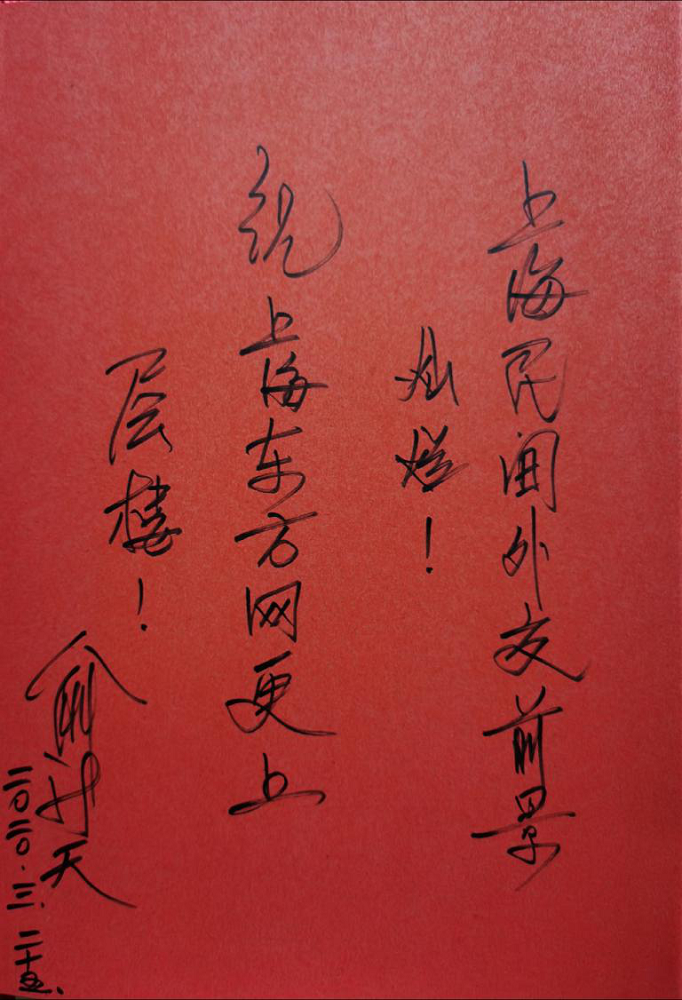 上海民间外交前景
灿烂!
祝上海东方网更上
一层楼!
俞新天
二〇二〇.三.二十五.